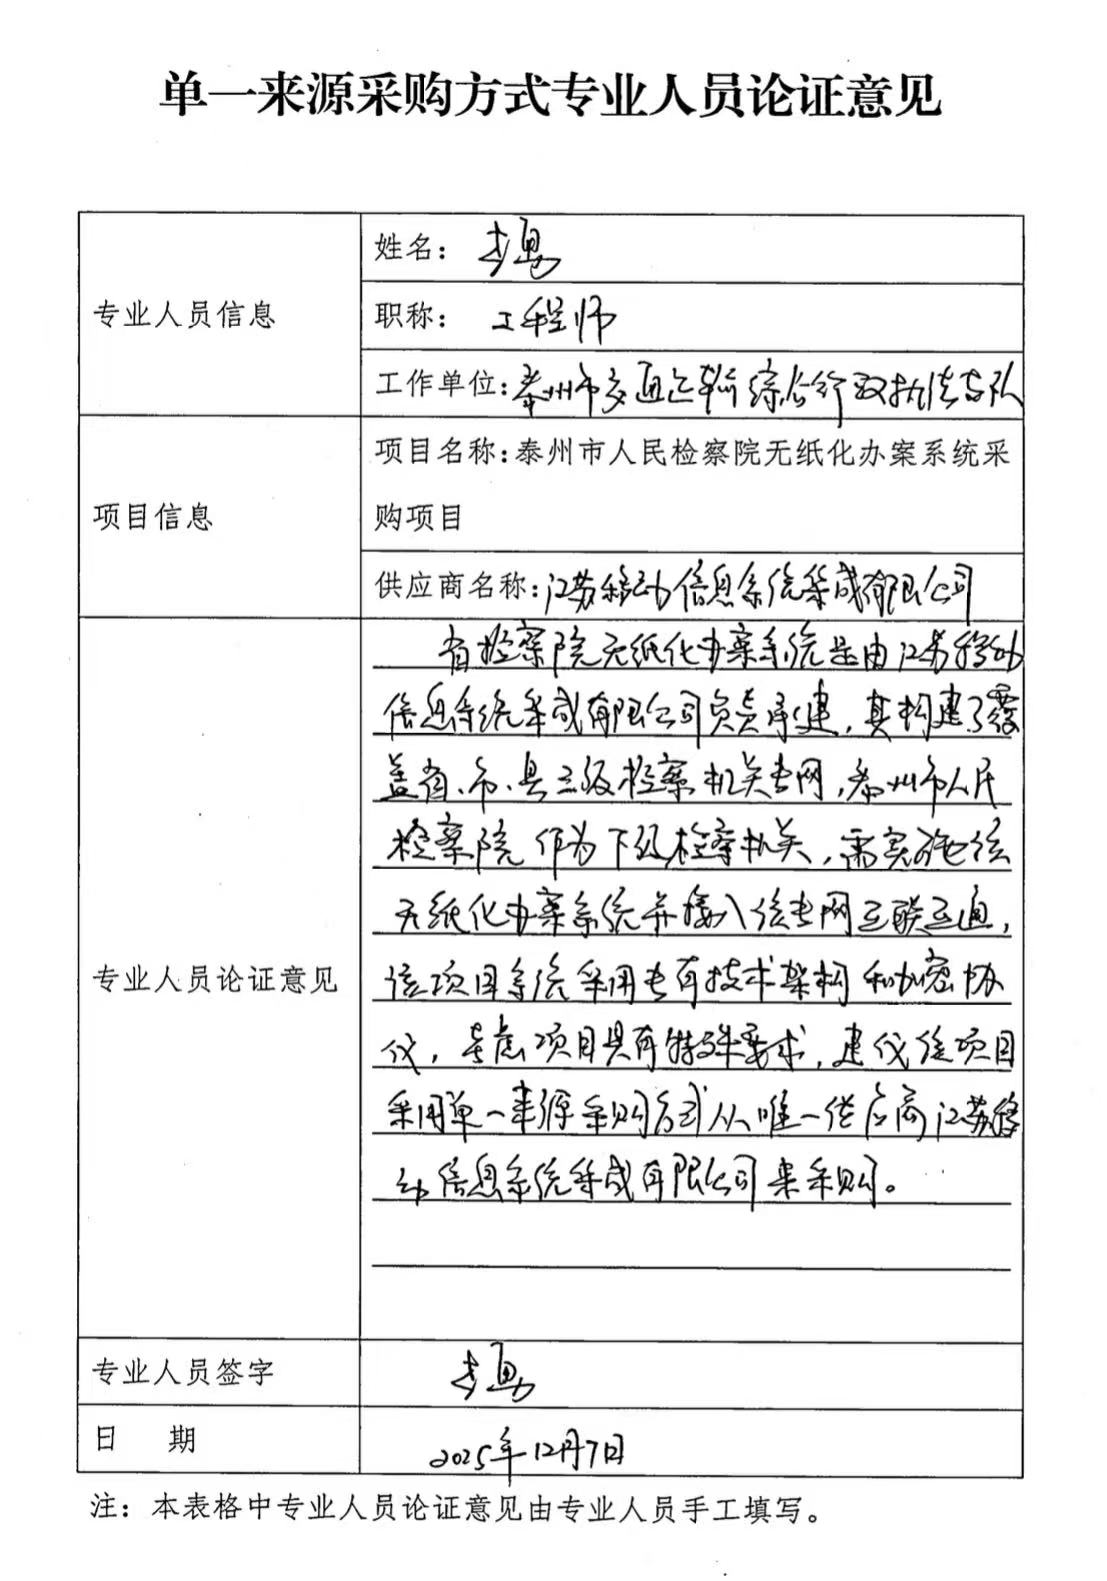 单一来源采购方式专业人员论证意见
专业人员信息
姓名：
职称： 工程师
工作单位：泰州市交通运输综合行政执法支队
项目信息
项目名称：泰州市人民检察院无纸化办案系统采
购项目
供应商名称：江苏移动信息系统集成有限公司
专业人员论证意见
省检察院无纸化办案系统是由江苏移动
信息系统集成有限公司负责承建，其构建了覆
盖省、市、县三级检察机关专网，泰州市人民
检察院作为下级检察机关，需实施该
无纸化办案系统并接入该专网互联互通，
该项目系统采用专有技术架构和加密协
议，考虑项目具有特殊要求，建议该项目
采用单一来源采购方式从唯一供应商江苏移
动信息系统集成有限公司来采购。
专业人员签字
日 期
2025年12月7日
注：本表格中专业人员论证意见由专业人员手工填写。